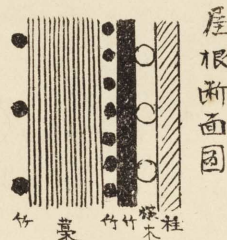 屋根断面図
竹
藁
竹
竹
横木
柱